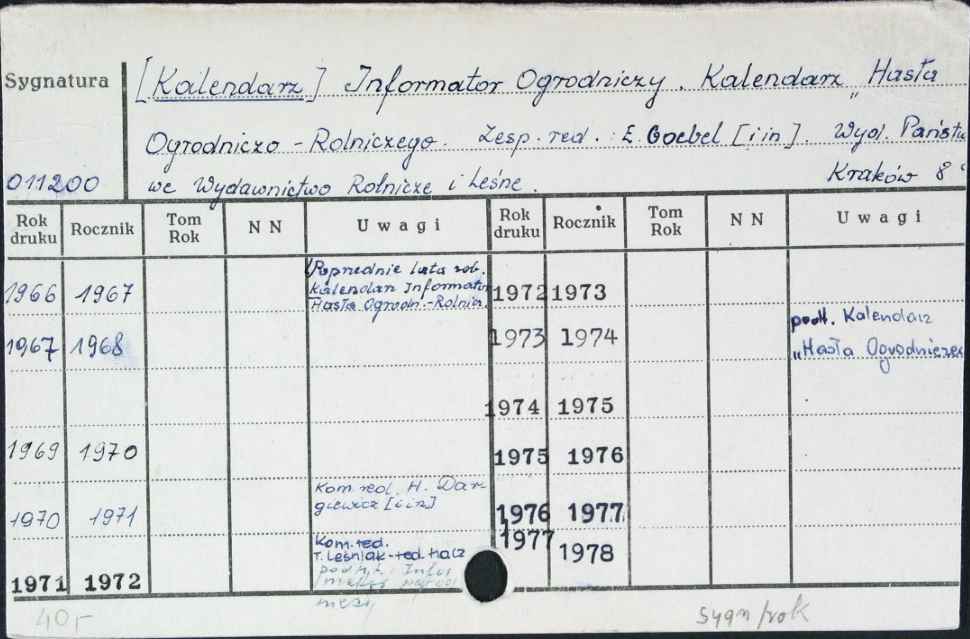 Sygnatura [Kalendarz] Informator Ogrodniczy. Kalendarz „Hasła
Ogrodniczo - Rolniczego. Zesp. red.: E. Goebel [i in]. Wyd. Państw
011200 we Wydawnictwo Rolnicze i Leśne. Kraków 8°
Rok druku Rocznik Tom Rok N N Uwagi Rok druku Rocznik Tom Rok N N Uwagi
Poprzednie lata zob.
Kalendarz Informator
Hasła Ogrodn.-Rolnicz.
1966 1967 1972 1973
podt. Kalendarz
1967 1968 1973 1974 „Hasła Ogrodniczeg
1974 1975
1969 1970 1975 1976
Kom. red. H. War-
giewicz [i in]
1970 1971 1976 1977
Kom. red. 1977
T. Leśniak-red. nacz 1978
1971 1972
40,-
sygn/rok